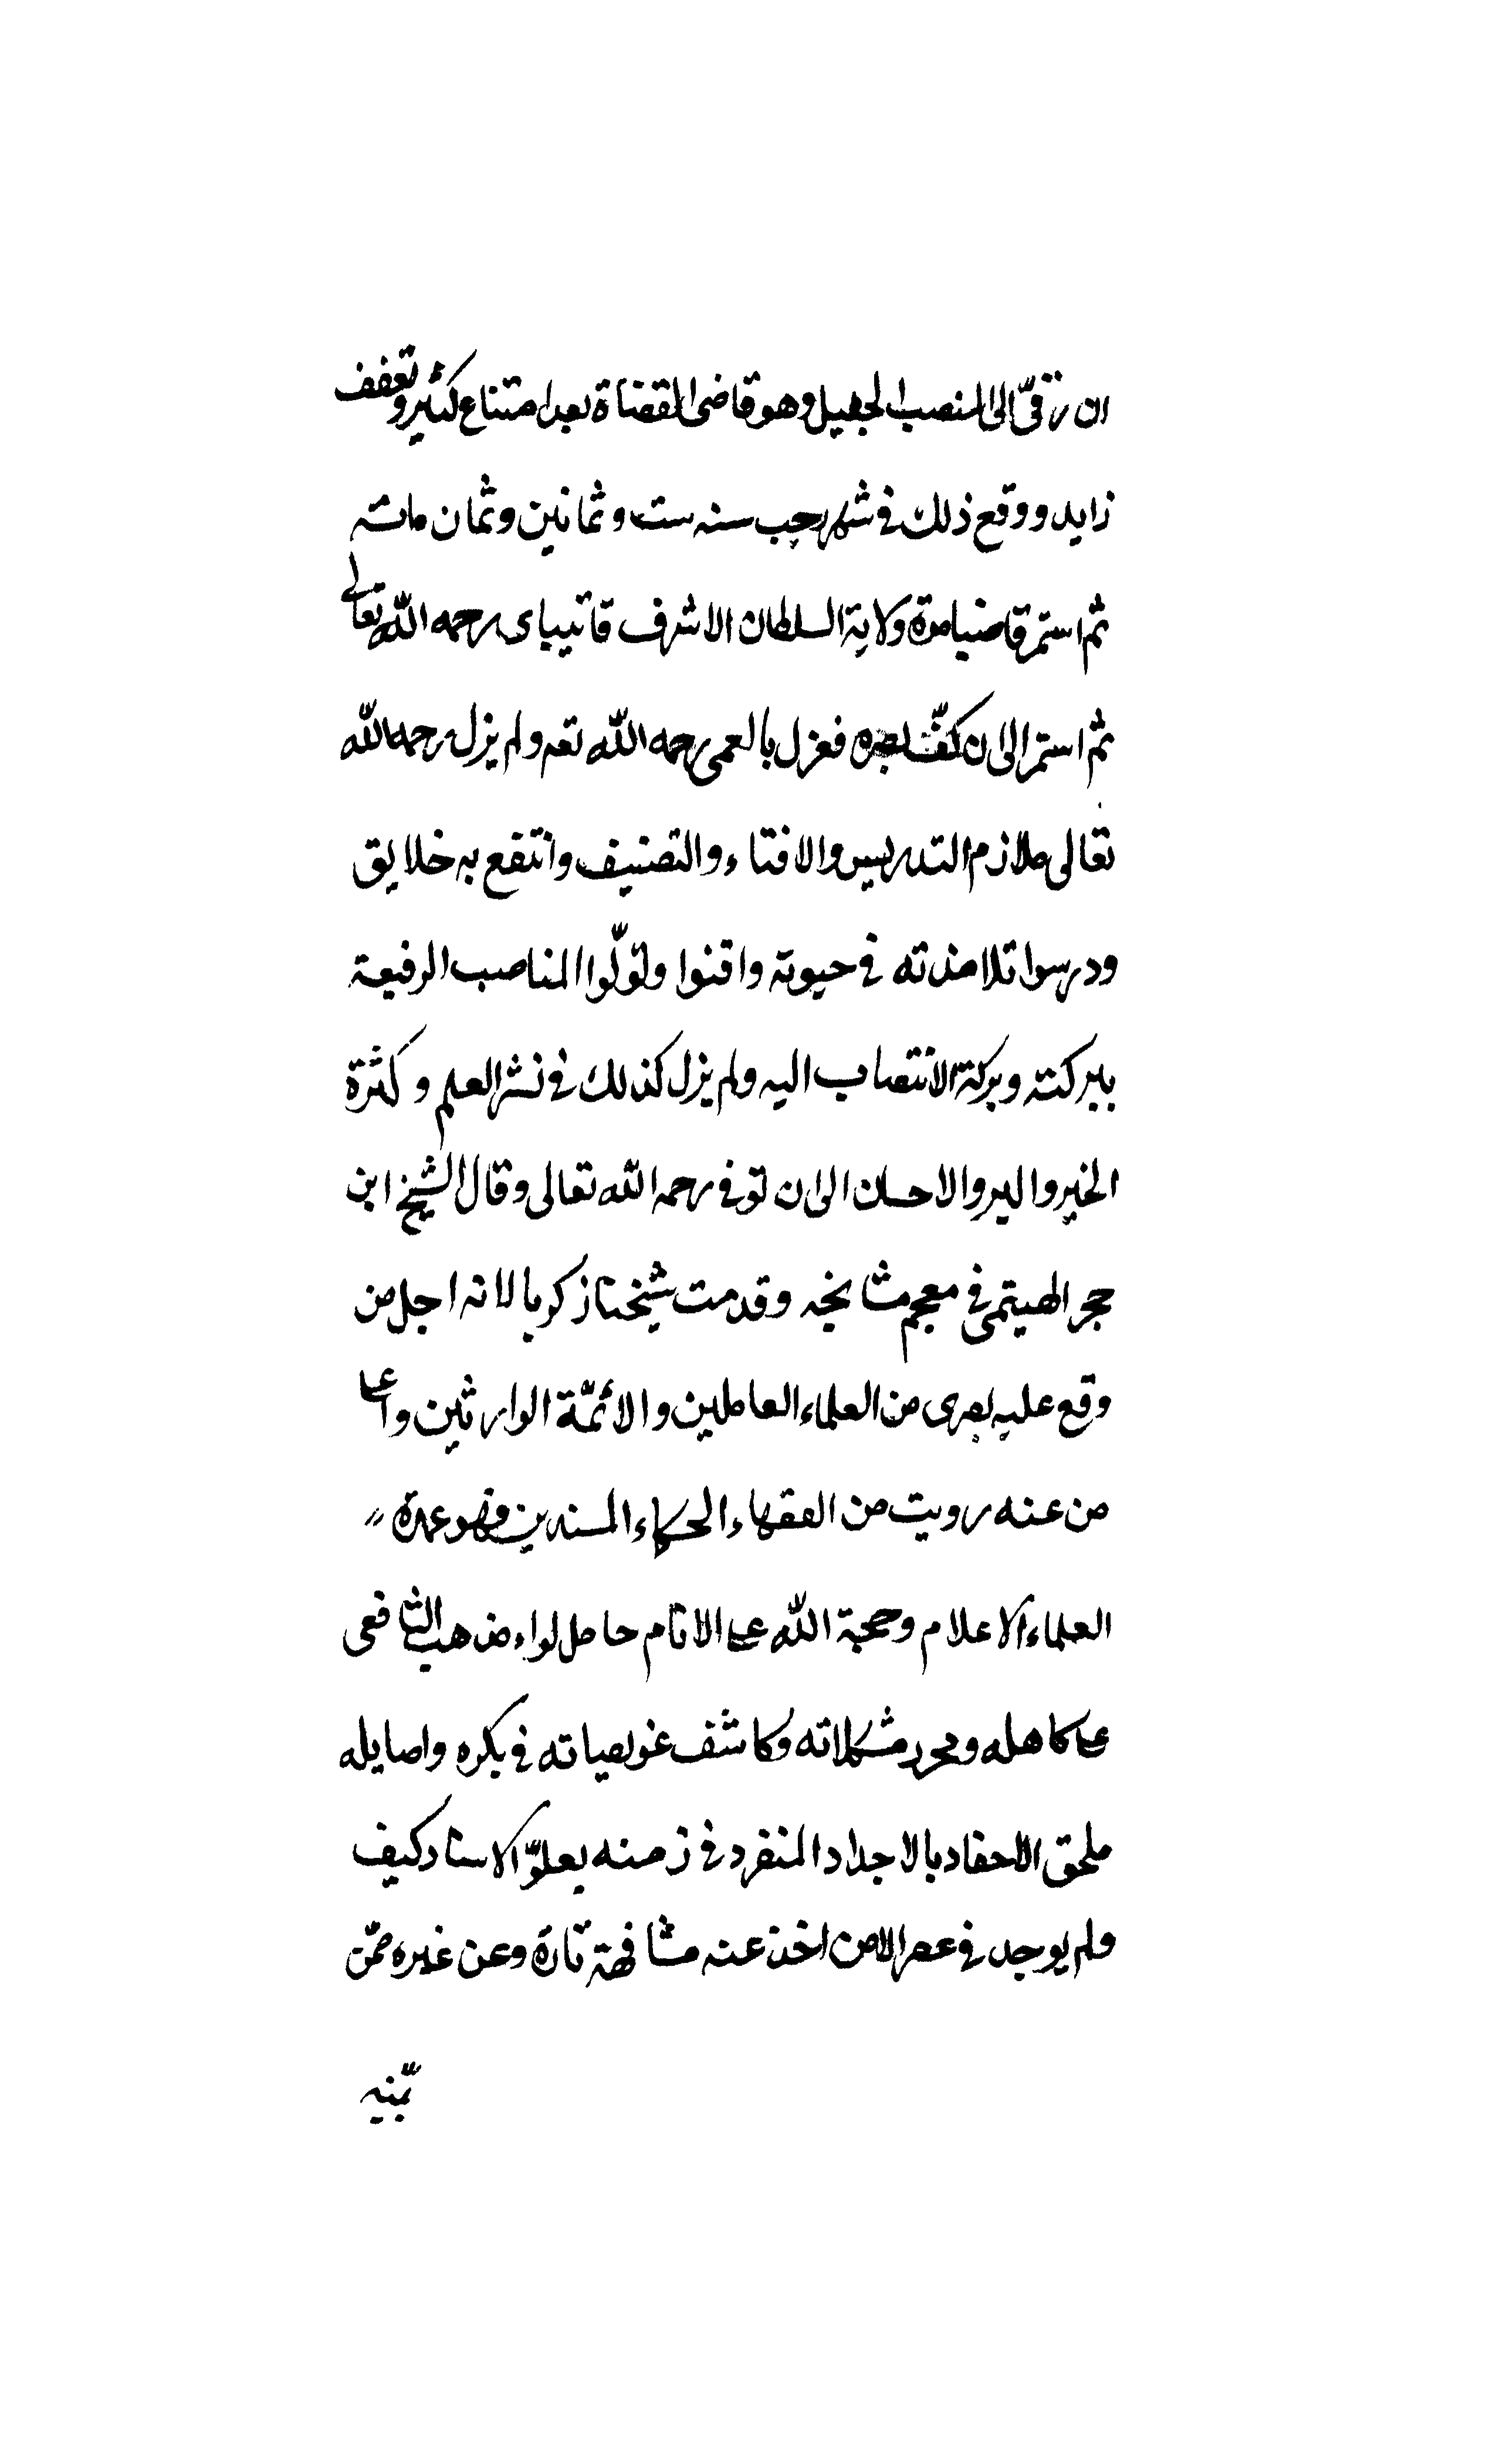 ان رقّى الى المنصب الجليل وهو قاضى القضاة بعد امتناع كثير وتعفف
زايد ووقع ذلك فى شهر رجب سنه ست وثمانين وثمان مائه
ثم استمر قاضيا مدة ولاية السلطان الاشرف قاتيباى رحمه الله تعالى
ثم استمر الى ان كفّ بصره فعزل بالعمى رحمه الله تعه ولم يزل رحمه الله
تعالى ملازم التدريس والافتاء والتصنيف وانتفع به خلايق
ودرسوا تلامذته فى حيوته وافتوا وتولّوا المناصب الرفيعة
ببركته وبركة الانتصاب اليه ولم يزل كذلك فى نشر العلم وكثرة
الخير والبر والاحسان الى ان توفى رحمه الله تعالى وقال الشيخ ابن
حجر الهيتمى فى معجم مشائخه وقدمت شيخنا زكريا لانه اجل من
وقع عليه بصرى من العلماء العاملين والائمّة الوارثين واعلى
من عنه رويت من الفقهاء الحكماء المسندين فهو عمدة
العلماء الاعلام وحجة الله على الانام حامل لواء مذهب الشافعى
على كاهله ومحرر مشكلاته وكاشف عويصاته فى بكره واصايله
ملحق الاحفاد بالاجداد المنفرد فى زمنه بعلوّ الاسناد كيف
ولم يوجد فى عصر الا من اخذ عنه مشافهة تارة وعن غيره ممّن
بّينه